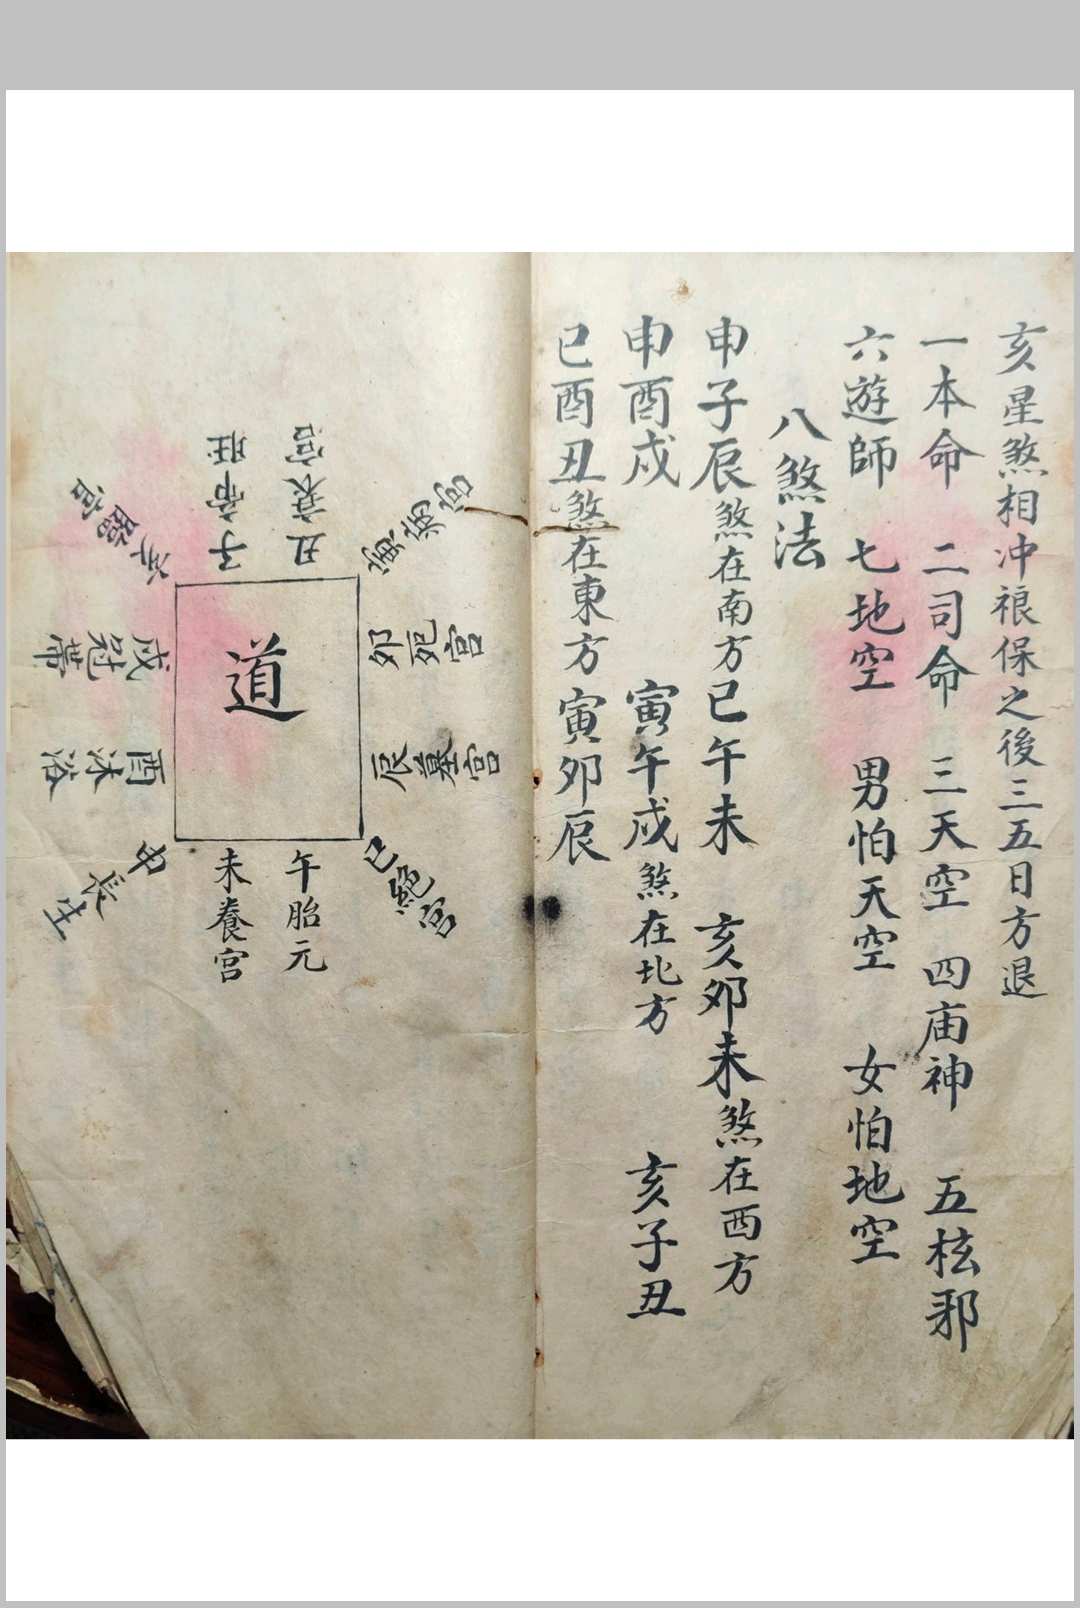 亥星煞相冲禓保之後三五日方退
一本命 二司命 三天空 四庙神 五柡邪
六遊師 七地空 男怕天空 女怕地空
八煞法
申子辰煞在南方巳午未 亥卯未煞在西方
申酉戍 寅午戍煞在北方 亥子丑
巳酉丑煞在東方寅卯辰
道
寅病宫
丑衰宫
子帝旺
亥臨官
戍冠帯
酉沐浴
申長生
未養宫
午胎元
巳絕宫
辰墓宫
卯死宫